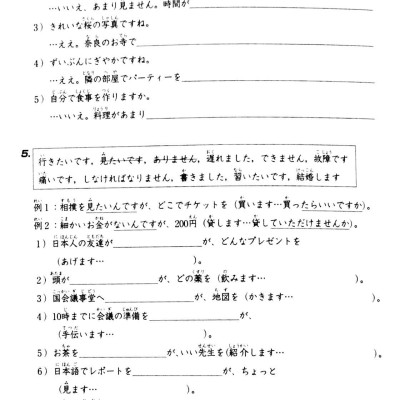 …いいえ、あまり見ません。時間が
3）きれいな桜の写真ですね。
…ええ。奈良のお寺で
4）ずいぶんにぎやかですね。
…ええ。隣の部屋でパーティーを
5）自分で食事を作りますか。
…いいえ。料理があまり
5.
行きたいです，見たいです，ありません，遅れました，できません，故障です
痛いです，しなければなりません，書きました，習いたいです，結婚します
例1：相撲を見たいんですが、どこでチケットを（買います…買ったらいいですか）。
例2：細かいお金がないんですが、200円（貸します…貸していただけませんか）。
1）日本人の友達が が、どんなプレゼントを
（あげます… ）。
2）頭が が、どの薬を（飲みます… ）。
3）国会議事堂へ が、地図を（かきます… ）。
4）10時までに会議の準備を が、
（手伝います… ）。
5）お茶を が、いい先生を（紹介します… ）。
6）日本語でレポートを が、ちょっと
（見ます… ）。